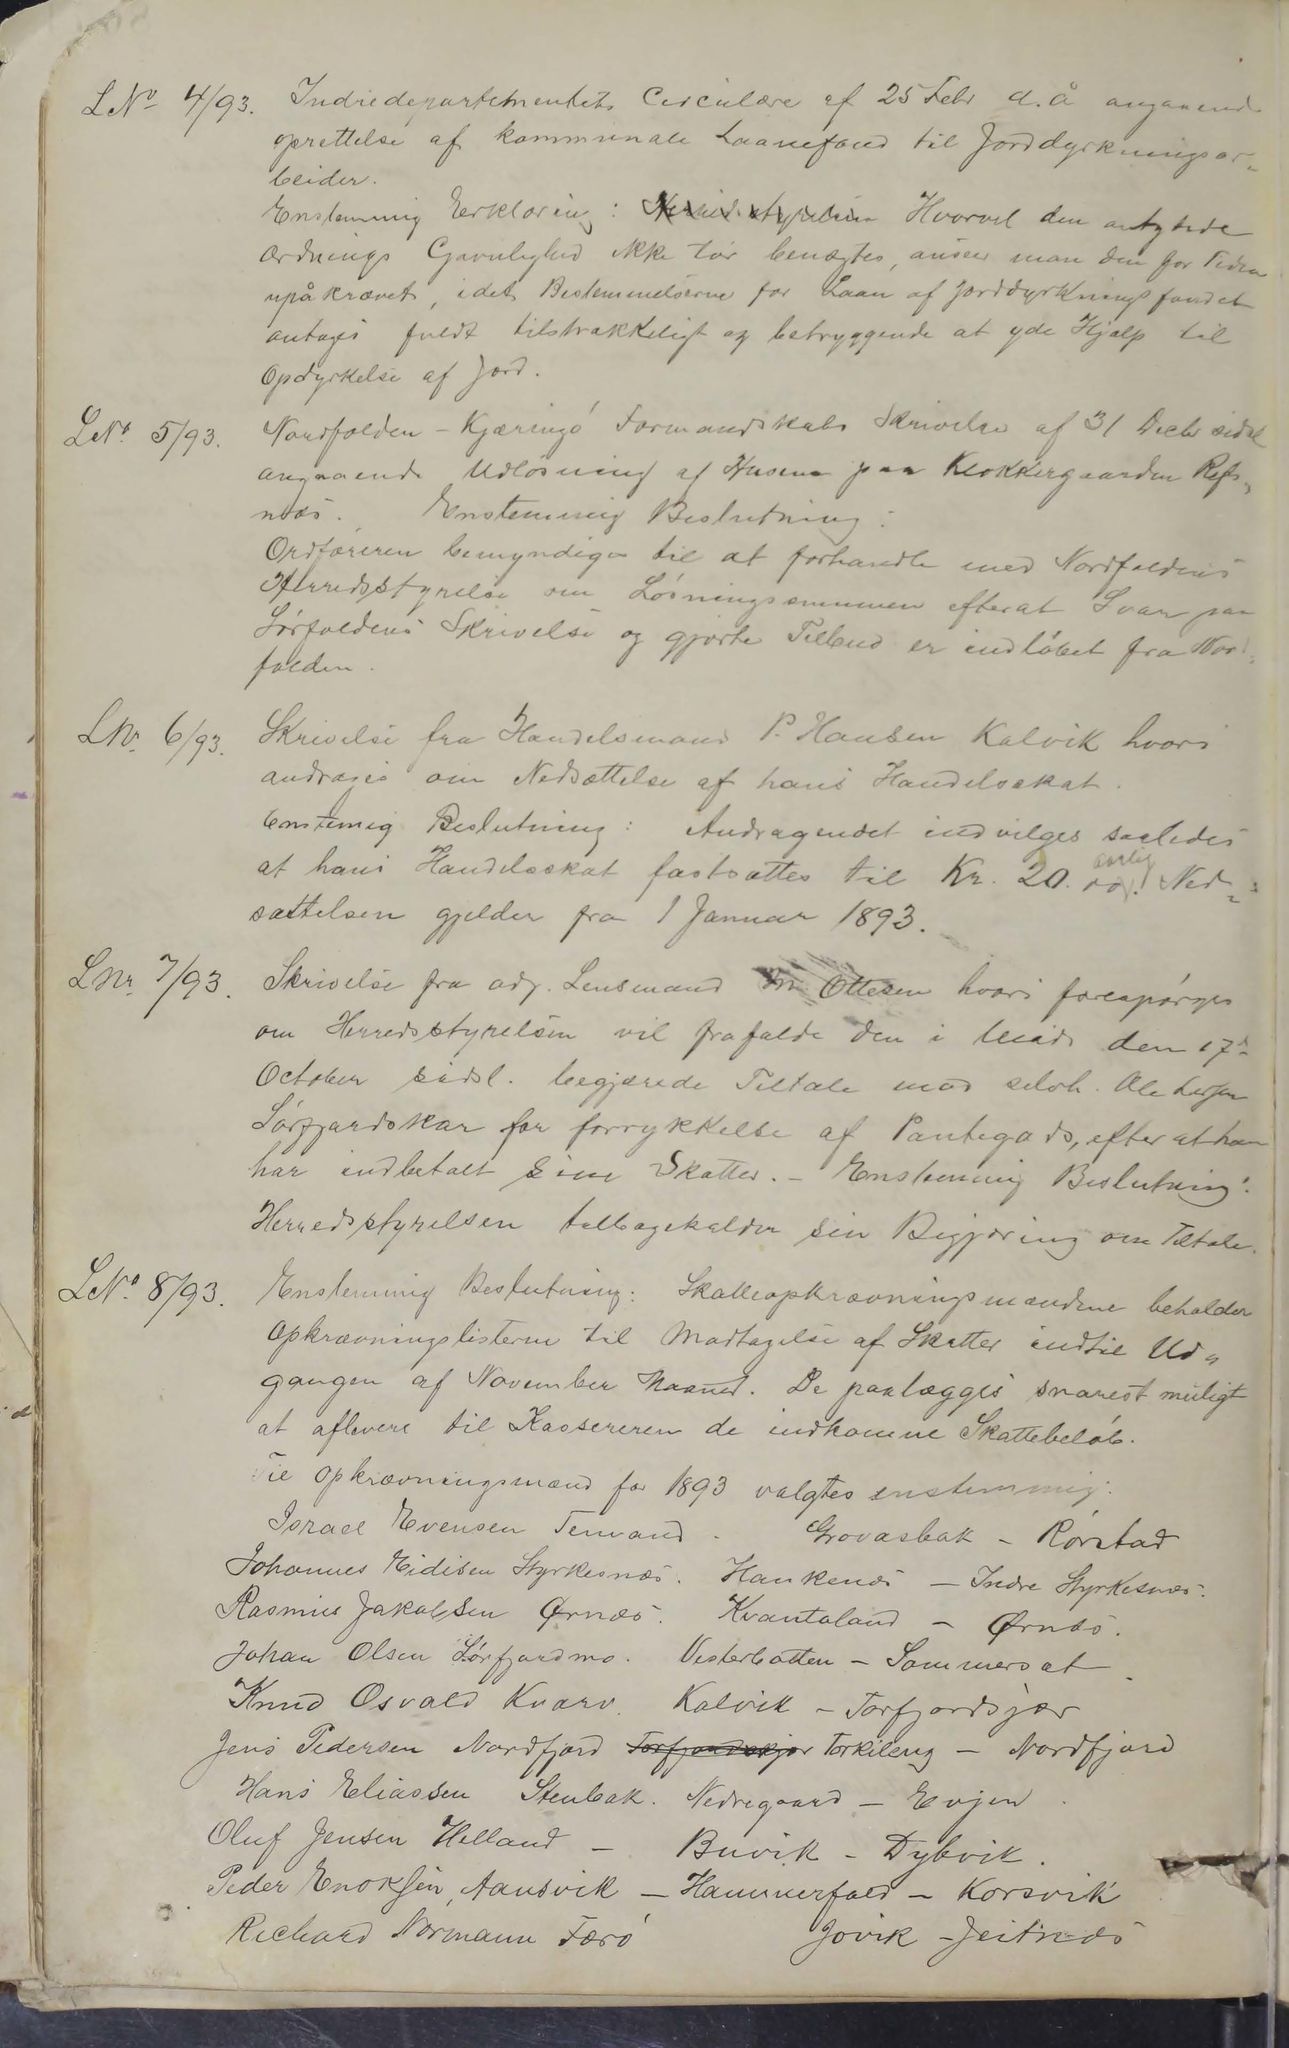 LNo 4/93. Indredepartementets Circulære af 25 Febr d.å angaaende
oprettelse af kommunale Laanefond til Jorddyrkningsar-
beider.
Enstemmig Erklæring: Herredsstyrelsen Hvorvel den antydede
Ordnings Gavnlighed ikke tør benægtes, anseer man den for Tiden
upåkrævet, idet Bestemmelserne for Laan af Jorddyrkningsfondet
antages fuldt tilstrækkeligt og betryggende at yde Hjælp til
Opdyrkelse af Jord.
LNo 5/93. Nordfolden - Kjæringø Formandskabs Skrivelse af 31 Decbr sidstl
angaaende Udløsning af Husene paa Klokkergaarden Røs-
næs. Enstemmig Beslutning:
Ordføreren bemyndiges til at forhandle med Nordfoldens
Herredsstyrelse om Løsningssummen efterat Svar paa
Sørfoldens Skrivelse og gjorte Tilbud er indløbet fra Nord-
folden.
LNr. 6/93. Skrivelse fra Handelsmand P. Hansen Kalvik hvori
andrages om Nedsættelse af hans Handelsskat.
Enstemig Beslutning: Andragendet indvilges saaledes
at hans Handelsskat fastsættes til Kr. 20.00 aarlig. Ned-
sættelsen gjelder fra 1 Januar 1893.
LNr. 7/93. Skrivelse fra adj. Lensmand Ottesen hvori forespørges
om Herredsstyrelsen vil frafalde den i Møde den 17de
October sidstl. begjærede Tiltale mod selvh. Ole Larsen
Sørfjordskar for forrykkelse af Pantegods, efter at han
har indbetalt sine Skatter. - Enstemmig Beslutning:
Herredsstyrelsen tilbagekalder sin Begjæring om Tiltale.
LNo 8/93. Enstemmig Beslutning: Skatteopkrævningsmændene beholder
Opkrævningslisterne til Modtagelse af Skatter indtil Ud-
gangen af November Maaned. De paalægges snarest muligt
at aflevere til Kassereren de indkomne Skattebeløb.
Til Opkrævningsmænd for 1893 valgtes enstemmig:
Israel Evensen Tenvand. Grovasbak - Rørstad
Johannes Eidisen Styrkesnæs. Hankenæs - Indre Styrkesnæs.
Rasmus Jakobsen Ørnæs. Kvantoland - Ørnæs.
Johan Olsen Sørfjordmo. Vesterbotten - Sommerset.
Knud Osvald Kvarv. Kalvik - Torfjordsjær
Jens Pedersen Nordfjord Torfjordskjær Torkileng - Nordfjord
Hans Eliassen Stenbak. Nedregaard - Evjen.
Oluf Jensen Helland - Buvik - Dybvik.
Peder Enoksen, Aansvik - Hammerfald - Korsvik
Richard Normann Færø Jovik - Jeitnæs